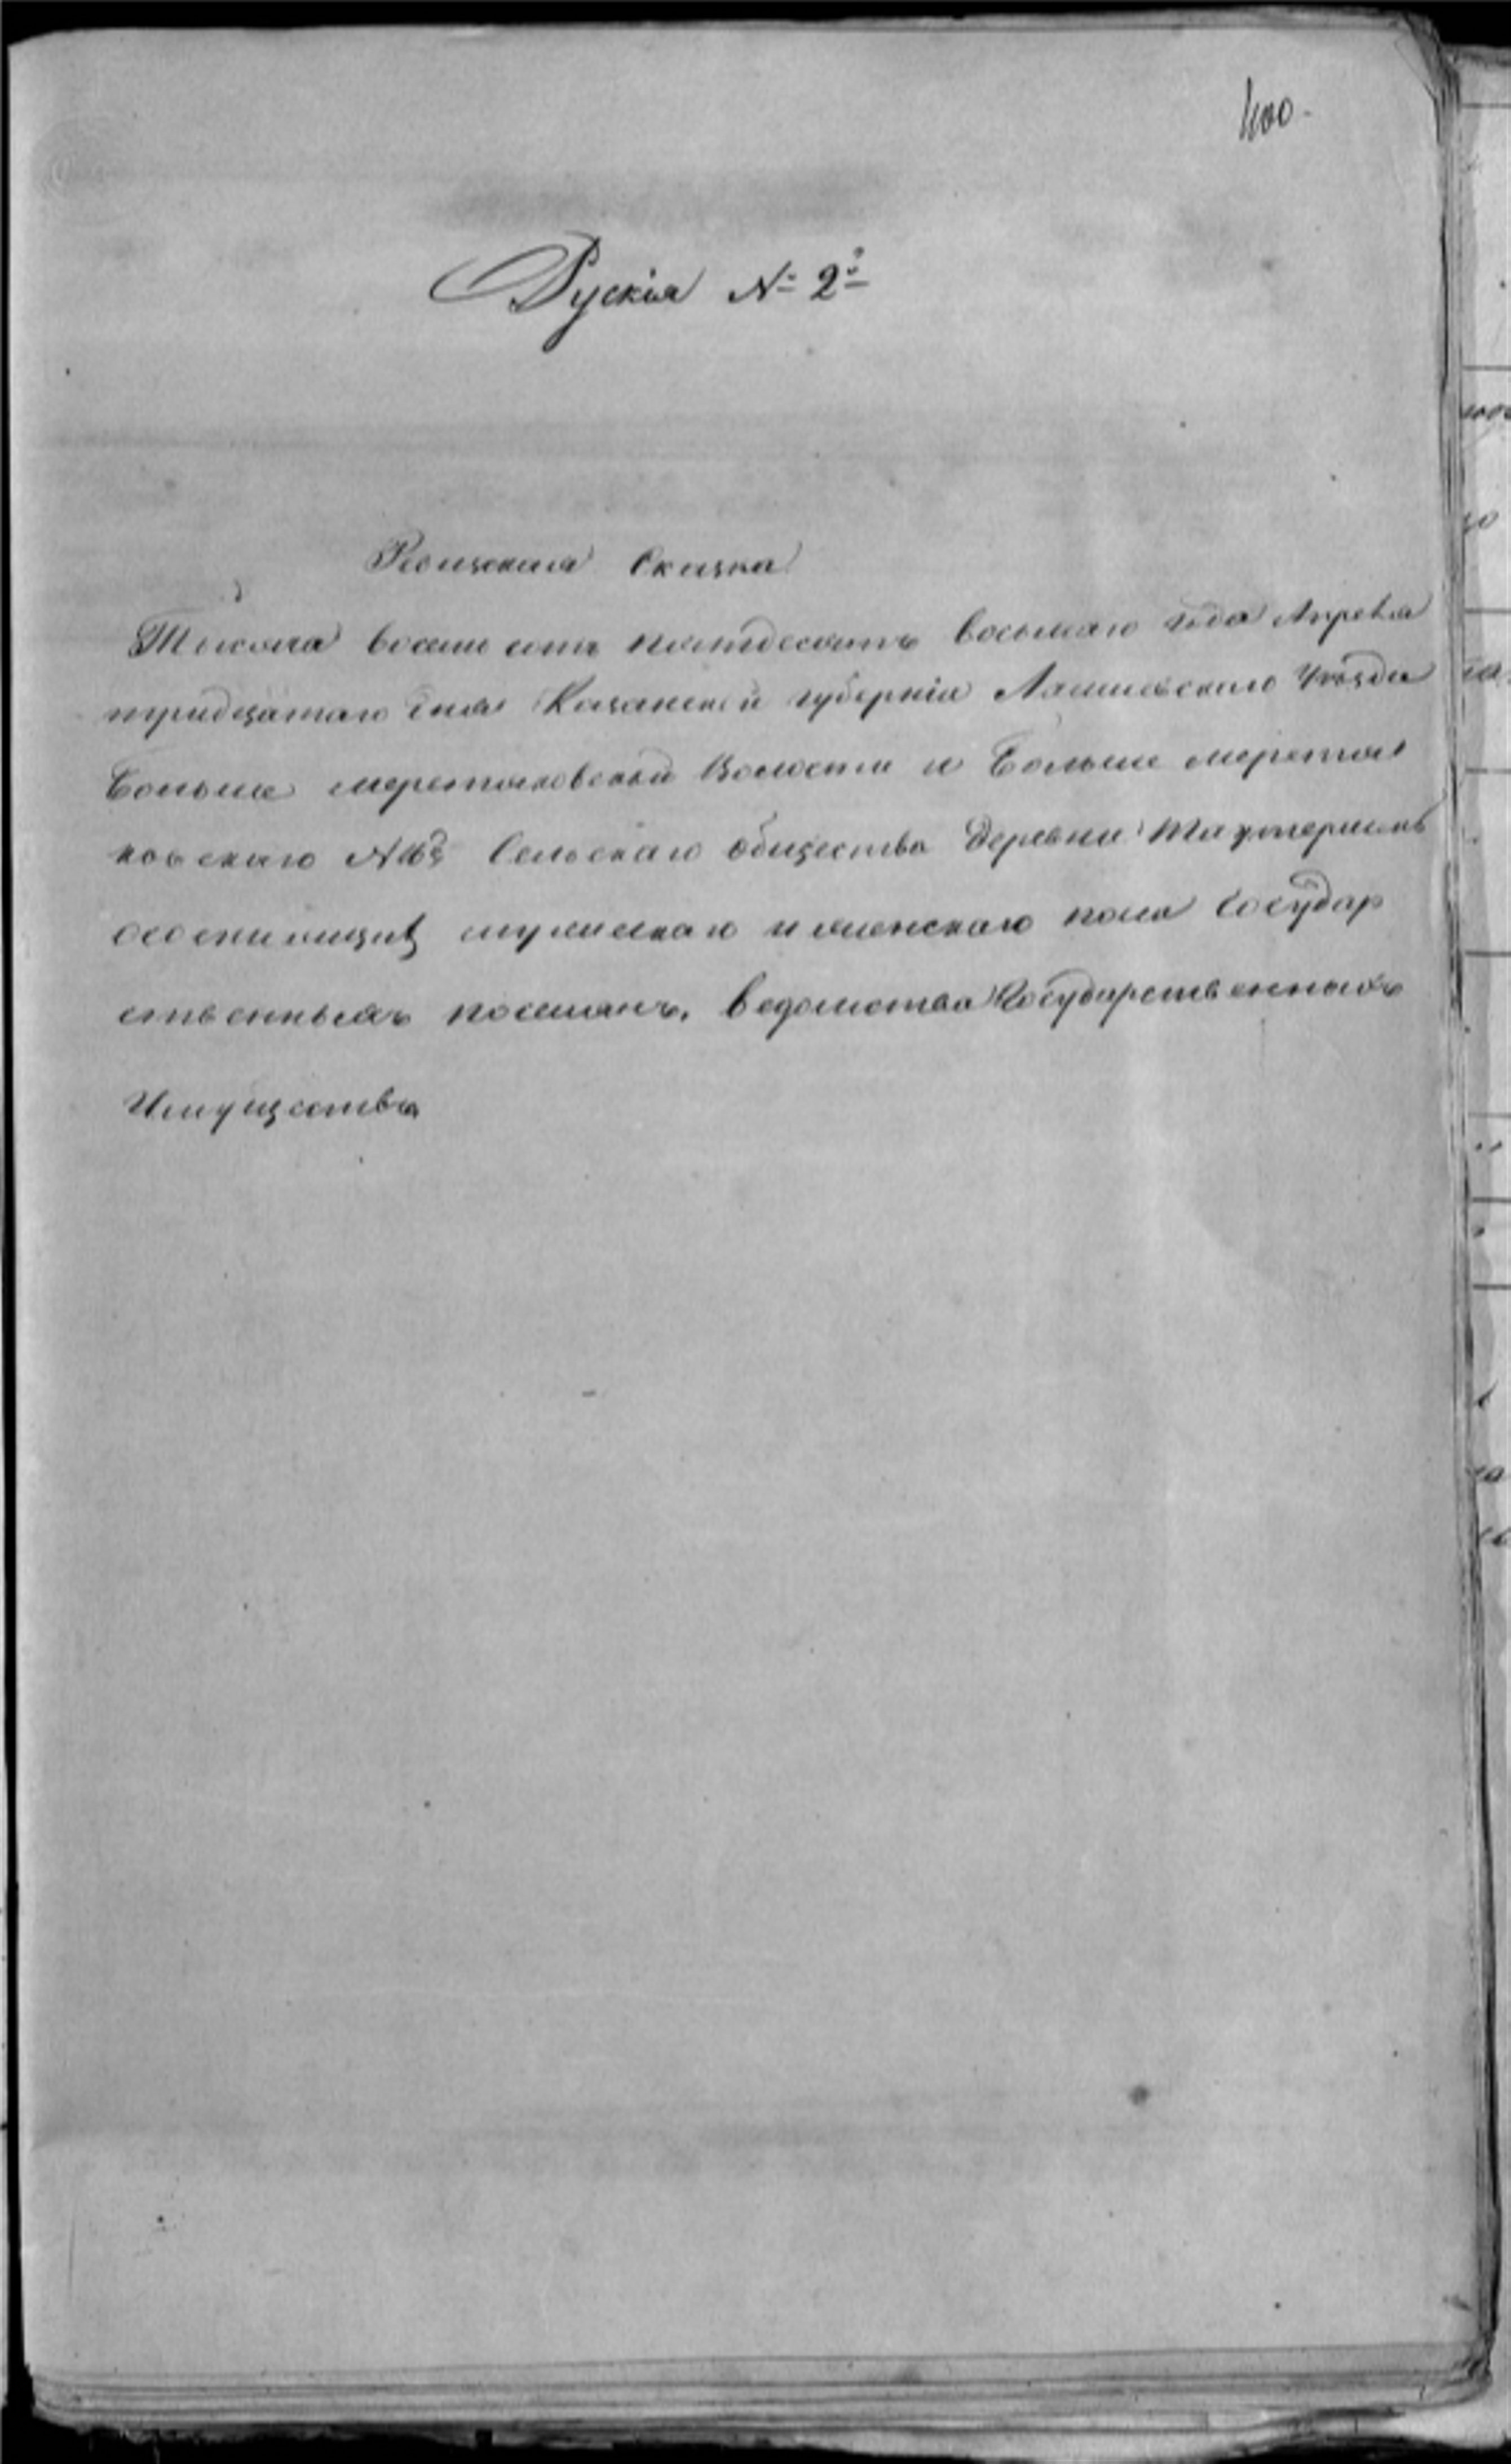 400.
Рускія № 2й
Ревизская Сказка
Тысяча восемь сотъ пятидесятъ восьмаго года Апреля
тридцатаго дня Казанской губерніи Лаишевского Уѣзда
Больше меретяковской Волости и Больше меретяк
ковскаго Сельскаго общества Деревни
мужескаго и женскаго пола Государ
ственныхъ поселянъ, ведомства Государственныхъ
Имуществъ